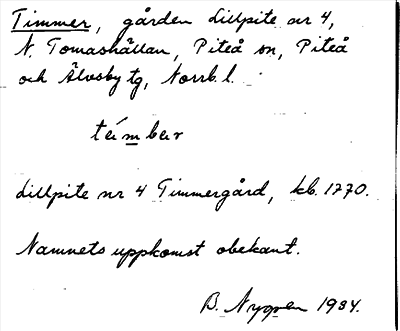 Timmer, gården Lillpite nr 4,
N. Tomashällan, Piteå sn, Piteå
och Älvsby tg, Norrb. l.
tímbar
Lillpite nr 4 Timmergård, kb. 1770.
Namnets uppkomst obekant.
B. Nygren 1934.